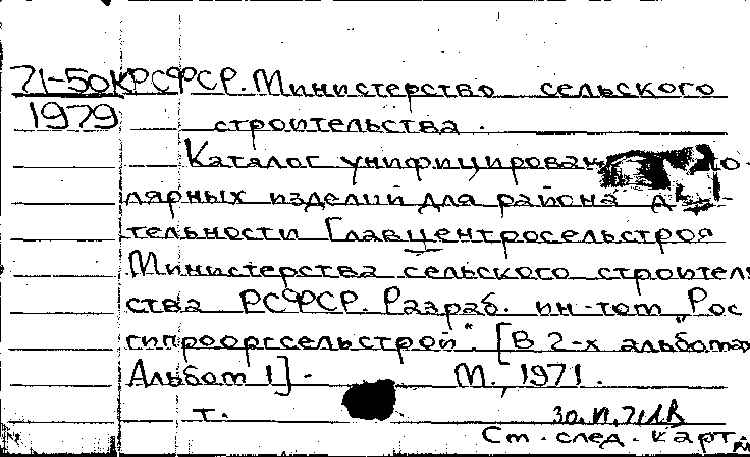 71-50К РСФСР. Министерство сельского
1979 строительства.
Каталог унифицирован
лярных изделий для района
тельности Главцентросельстроя
Министерства сельского строитель
ства РСФСР. Разраб. ин-том „Рос
гипрооргсельстрой". [В 2-х альбомах
Альбом 1]. М., 1971.
т.
См. след. карт.